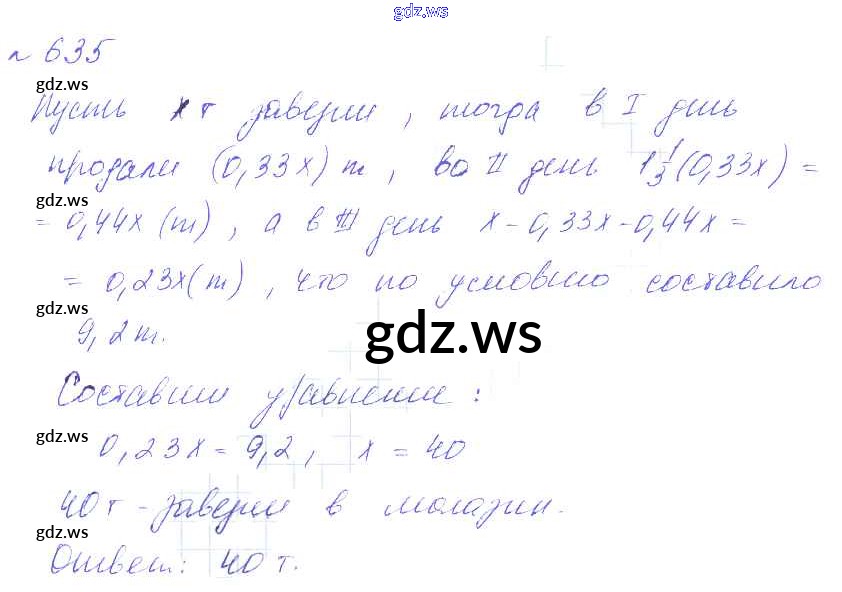 gdz.ws
№ 635
gdz.ws
Пусть x т завезли, тогда в I день
продали (0,33x) т, во II день 1 1/3 (0,33x) =
gdz.ws
= 0,44x (т), а в III день x - 0,33x - 0,44x =
= 0,23x (т), что по условию составило
gdz.ws
9,2 т.
gdz.ws
Составим уравнение:
gdz.ws
0,23x = 9,2, x = 40
40 т - завезли в магазин.
gdz.ws
Ответ: 40 т.